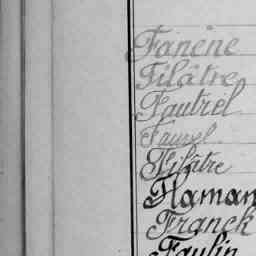 Fanène
Filâtre
Fautrel
Fauvel
Filâtre
Flaman
Franck
Faulin